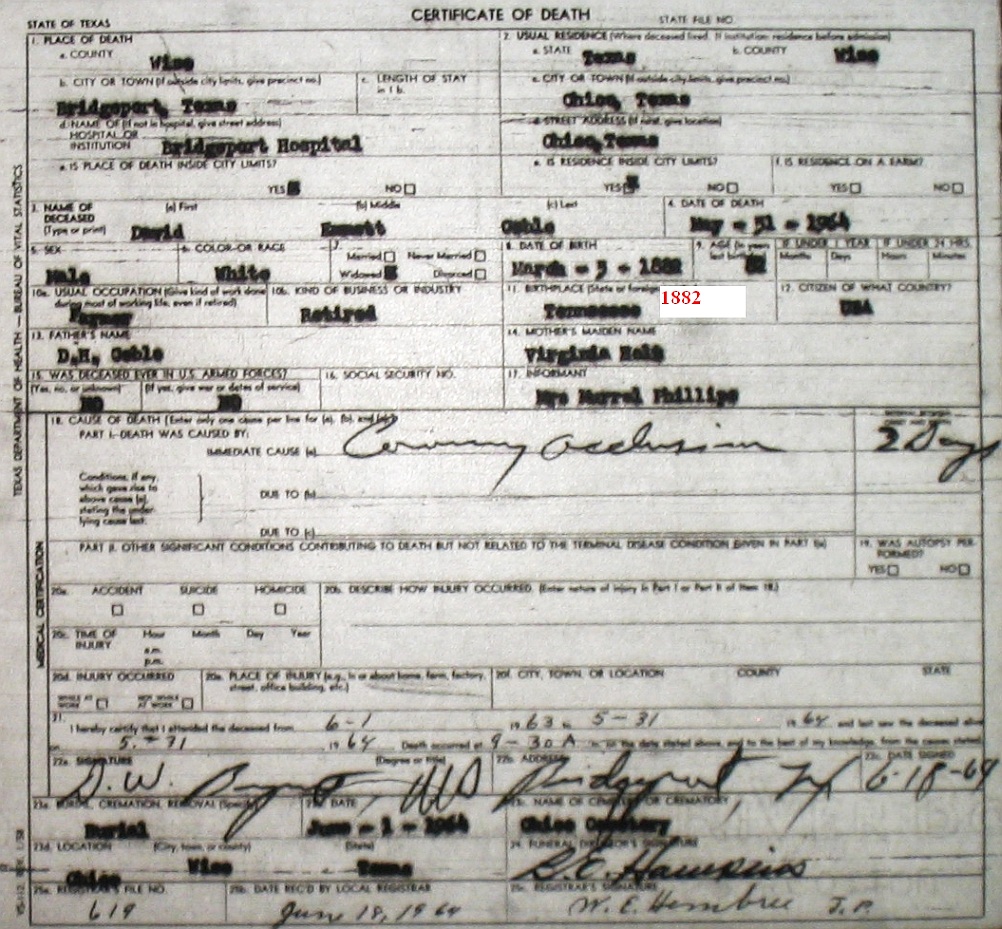 CERTIFICATE OF DEATH
STATE OF TEXAS STATE FILE NO.
1. PLACE OF DEATH 2. USUAL RESIDENCE (Where deceased lived. If institution: residence before admission)
a. COUNTY Wise a. STATE Texas b. COUNTY Wise
b. CITY OR TOWN (If outside city limits, give precinct no.) c. LENGTH OF STAY in 1 b. c. CITY OR TOWN (If outside city limits, give precinct no.)
Bridgeport, Texas Chico, Texas
d. NAME OF (If not in hospital, give street address) d. STREET ADDRESS (If rural, give location)
HOSPITAL OR INSTITUTION Bridgeport Hospital Chico, Texas
e. IS PLACE OF DEATH INSIDE CITY LIMITS? e. IS RESIDENCE INSIDE CITY LIMITS? f. IS RESIDENCE ON A FARM?
YES NO YES NO YES NO
3. NAME OF DECEASED (Type or print) (a) First (b) Middle (c) Last 4. DATE OF DEATH
David Emmett Goble May - 31 - 1964
5. SEX 6. COLOR OR RACE 7. Married Never Married Widowed Divorced 8. DATE OF BIRTH 9. AGE (In years last birthday) IF UNDER 1 YEAR IF UNDER 24 HRS.
Months Days Hours Minutes
Male White March - 3 - 1882 82
10a. USUAL OCCUPATION (Give kind of work done during most of working life, even if retired) 10b. KIND OF BUSINESS OR INDUSTRY 11. BIRTHPLACE (State or foreign 1882 12. CITIZEN OF WHAT COUNTRY?
Farmer Retired Tennessee USA
13. FATHER'S NAME 14. MOTHER'S MAIDEN NAME
D.H. Goble Virginia
15. WAS DECEASED EVER IN U.S. ARMED FORCES? 16. SOCIAL SECURITY NO. 17. INFORMANT
(Yes, no, or unknown) (If yes, give war or dates of service)
NO NO Mrs Murrel Phillips
18. CAUSE OF DEATH [Enter only one cause per line for (a), (b), and (c)]
PART I. DEATH WAS CAUSED BY:
IMMEDIATE CAUSE (a) Coronary occlusion 2 Days
Conditions, if any, which gave rise to above cause (a), stating the underlying cause last.
DUE TO (b)
DUE TO (c)
PART II. OTHER SIGNIFICANT CONDITIONS CONTRIBUTING TO DEATH BUT NOT RELATED TO THE TERMINAL DISEASE CONDITION GIVEN IN PART I(a) 19. WAS AUTOPSY PERFORMED?
YES NO
20a. ACCIDENT SUICIDE HOMICIDE 20b. DESCRIBE HOW INJURY OCCURRED. (Enter nature of injury in Part I or Part II of item 18.)
20c. TIME OF INJURY Hour Month Day Year
a.m.
p.m.
20d. INJURY OCCURRED 20e. PLACE OF INJURY (e.g., in or about home, farm, factory, street, office building, etc.) 20f. CITY, TOWN, OR LOCATION COUNTY STATE
WHILE AT WORK NOT WHILE AT WORK
21. I hereby certify that I attended the deceased from 6-1 1963 to 5-31 1964 and last saw the deceased alive
on 5-31 1964 Death occurred at 9-30 A m. on the date stated above, and to the best of my knowledge, from the causes stated.
22a. SIGNATURE (Degree or title) 22b. ADDRESS 22c. DATE SIGNED
D. W. MD Bridgeport Tex 6-18-64
23a. BURIAL, CREMATION, REMOVAL (Specify) 23b. DATE 23c. NAME OF CEMETERY OR CREMATORY
Burial June - 1 - 1964 Chico Cemetery
23d. LOCATION (City, town, or county) (State) 24. FUNERAL DIRECTOR'S SIGNATURE
Chico Wise Texas
25a. REGISTRAR'S FILE NO. 25b. DATE REC'D BY LOCAL REGISTRAR 25c. REGISTRAR'S SIGNATURE
619 June 18, 1964 W. E. Hembree J.P.
TEXAS DEPARTMENT OF HEALTH — BUREAU OF VITAL STATISTICS
MEDICAL CERTIFICATION